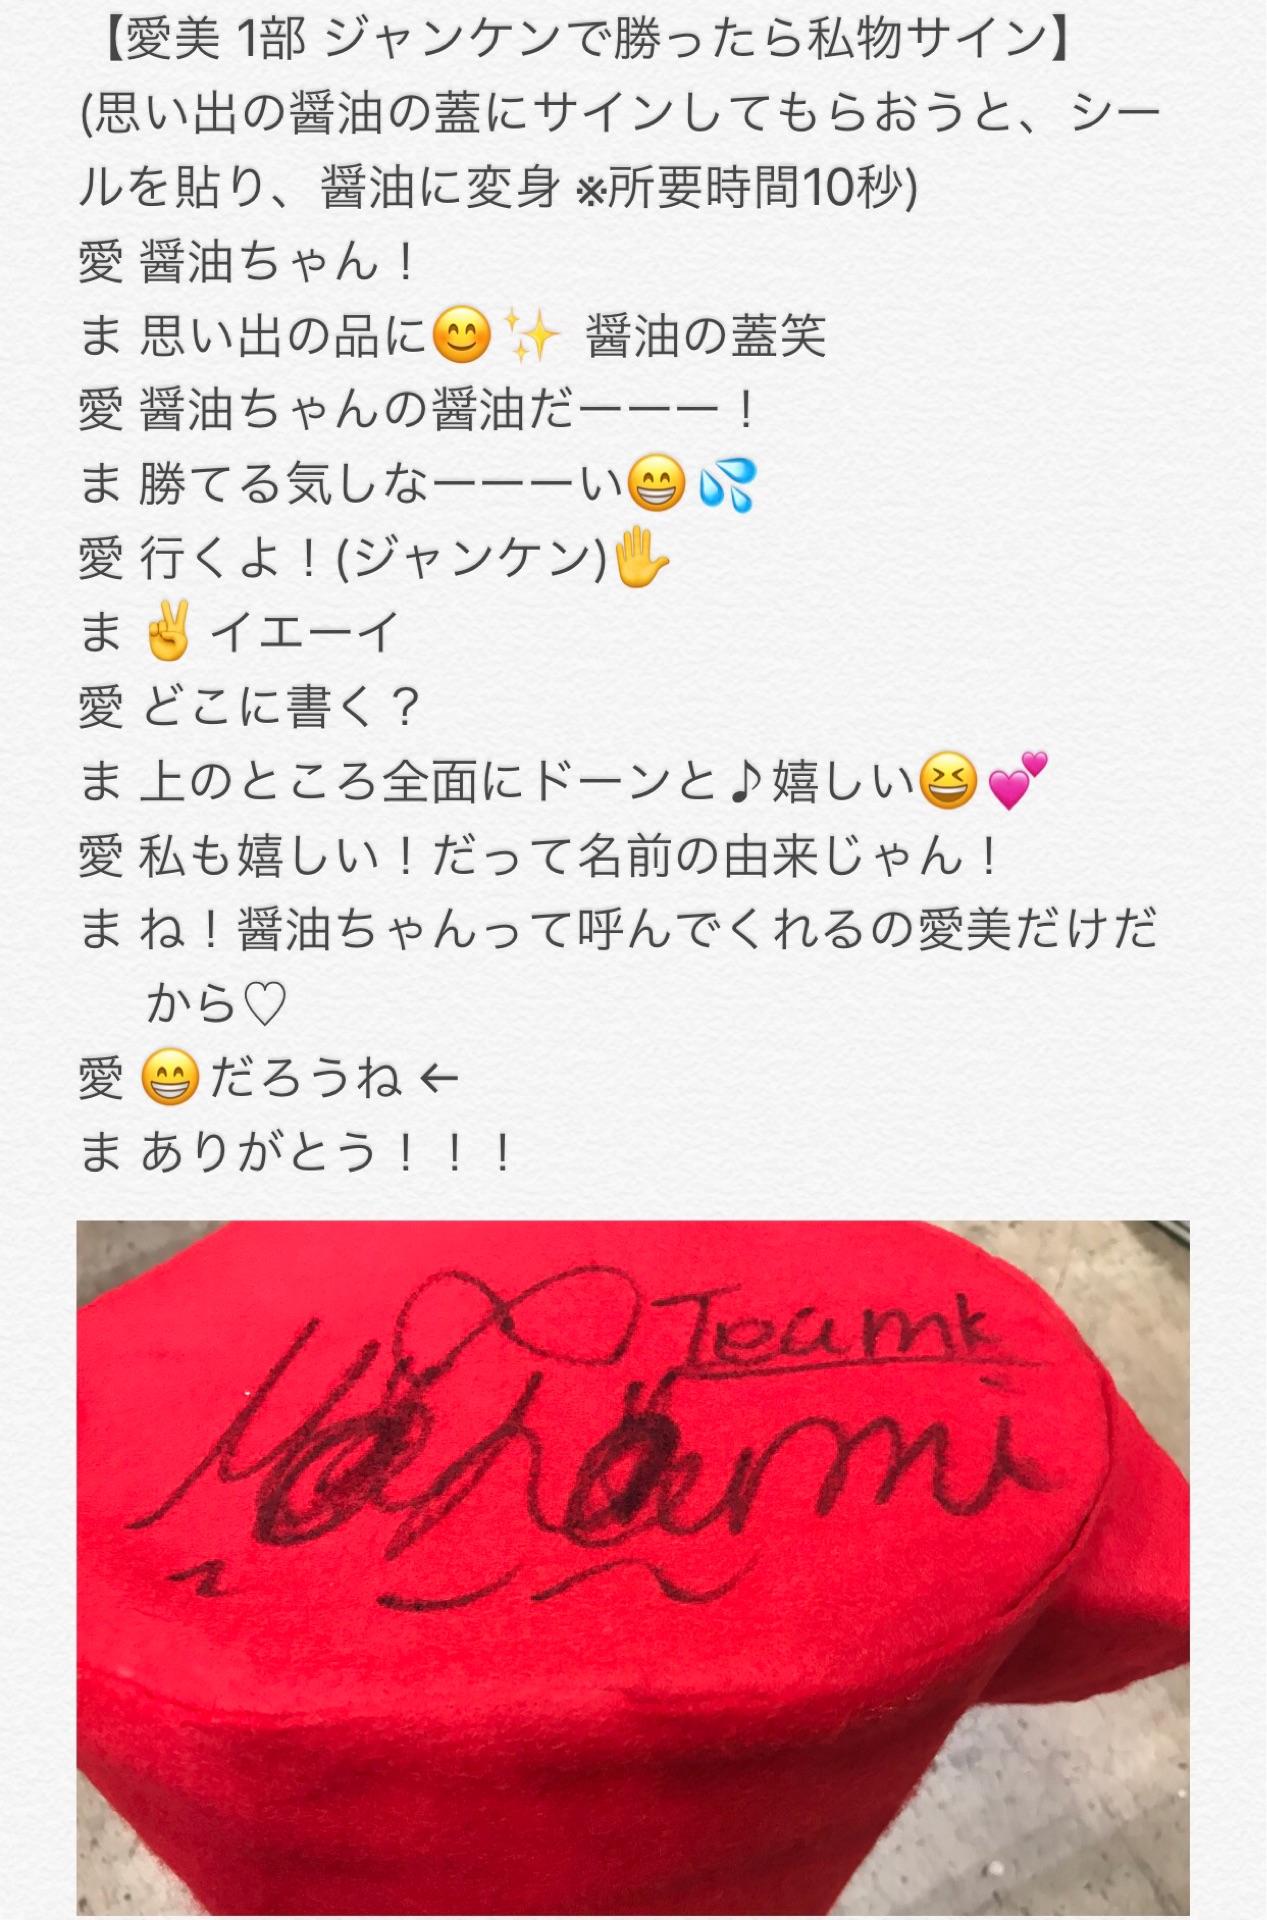 【愛美 1部 ジャンケンで勝ったら私物サイン】
(思い出の醤油の蓋にサインしてもらおうと、シー
ルを貼り、醤油に変身 ※所要時間10秒)
愛 醤油ちゃん！
ま 思い出の品に😊✨ 醤油の蓋笑
愛 醤油ちゃんの醤油だーーー！
ま 勝てる気しなーーーい😁💦
愛 行くよ！(ジャンケン)✋
ま ✌️イエーイ
愛 どこに書く？
ま 上のところ全面にドーンと♪嬉しい😆💕
愛 私も嬉しい！だって名前の由来じゃん！
ま ね！醤油ちゃんって呼んでくれるの愛美だけだ
から♡
愛 😁だろうね ←
ま ありがとう！！！
TeamK
Manami